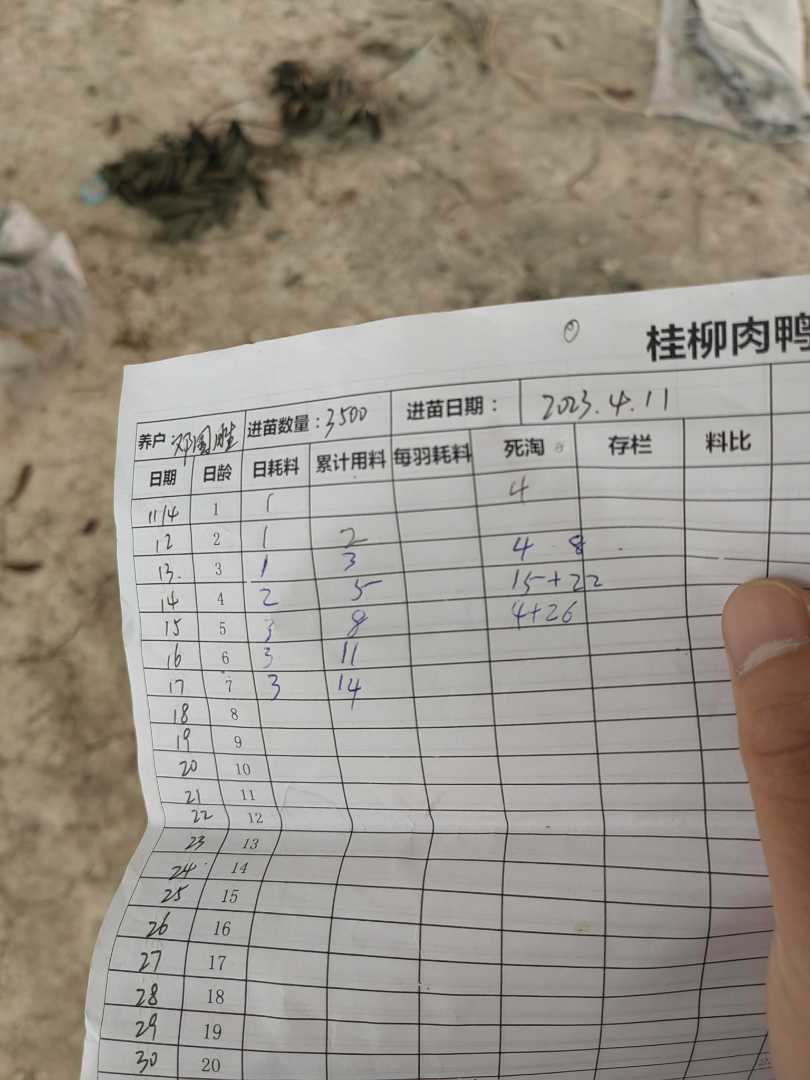 桂柳肉鸭
养户: 邓国胜 进苗数量:3500 进苗日期: 2023.4.11
日期 日龄 日耗料 累计用料 每羽耗料 死淘 存栏 料比
11/4 1 1 4
12 2 1 2
13. 3 1 3 4 8
14 4 2 5 15+22
15 5 3 8 4+26
16 6 3 11
17 7 3 14
18 8
19 9
20 10
21 11
22 12
23 13
24 14
25 15
26 16
27 17
28 18
29 19
30 20